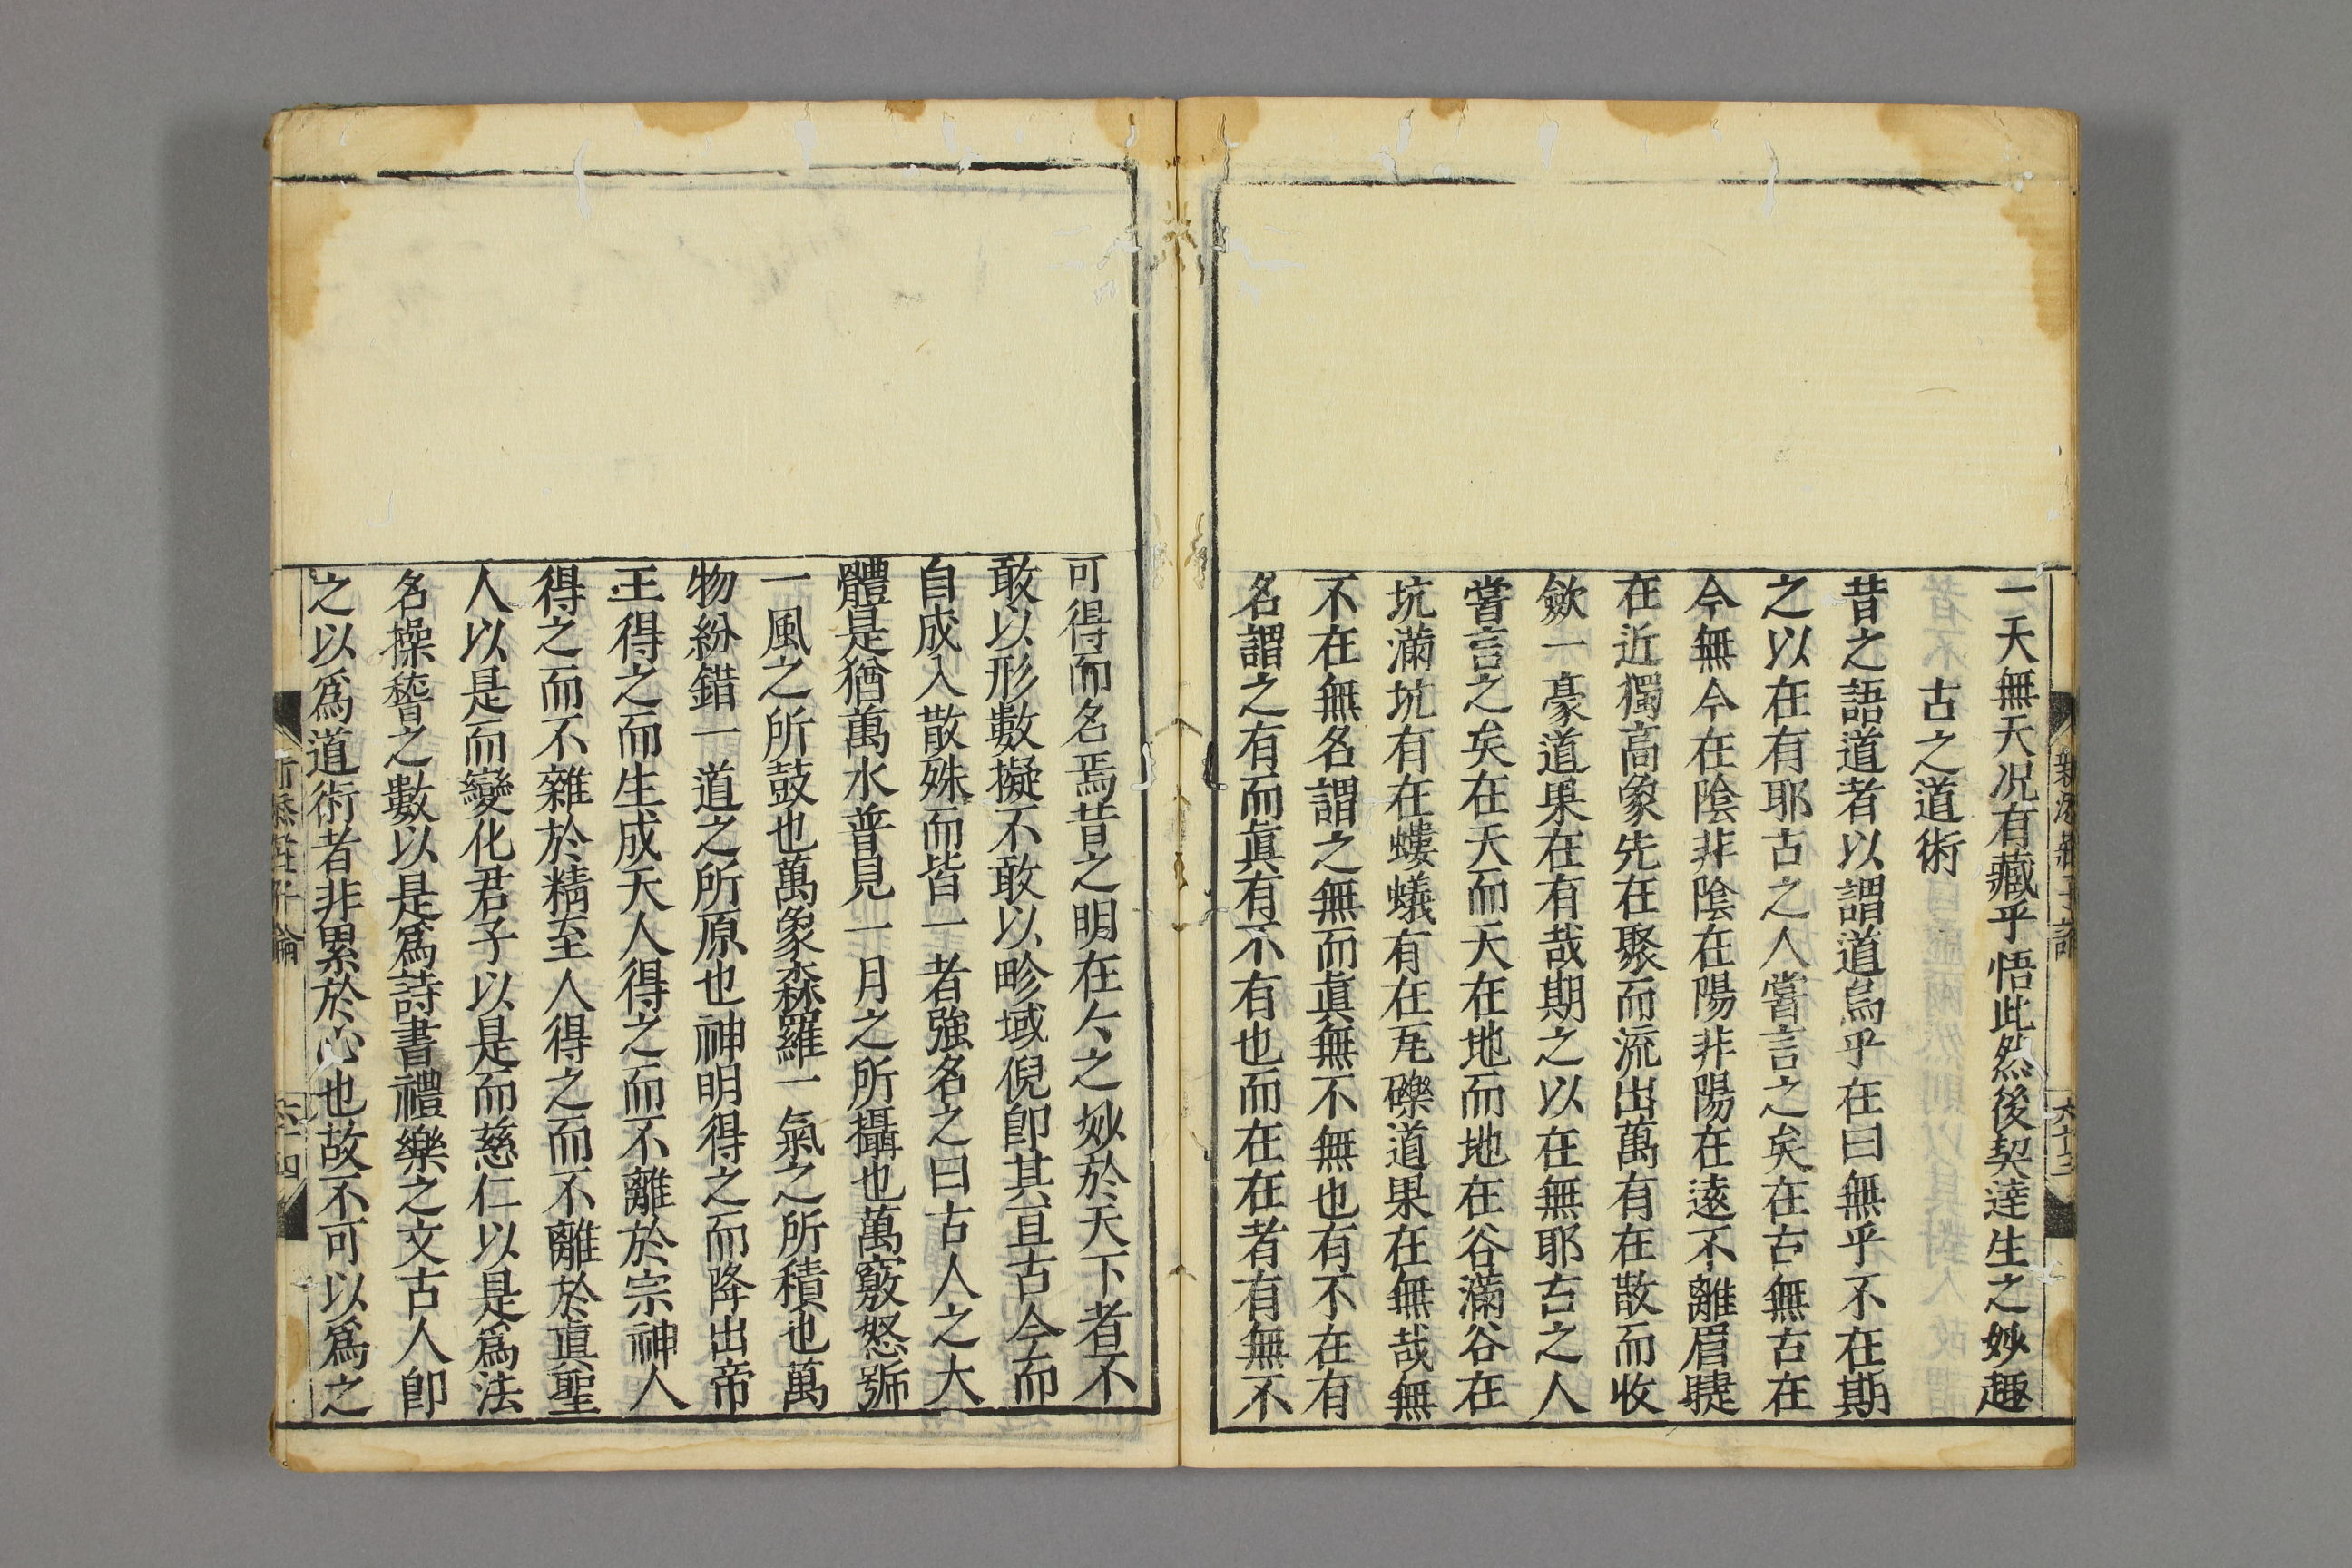 一天無天况有藏乎悟此然後契達生之妙趣
古之道術
昔之語道者以謂道烏乎在曰無乎不在期
之以在有耶古之人嘗言之矣在古無古在
今無今在陰非陰在陽非陽在遠不離眉睫
在近獨高象先在聚而流出萬有在散而收
歛一豪道果在有哉期之以在無耶古之人
嘗言之矣在天而天在地而地在谷滿谷在
坑滿坑有在螻蟻有在瓦礫道果在無哉無
不在無名謂之無而眞無不無也有不在有
名謂之有而眞有不有也而在在者有無不
可得而名焉昔之明在今之妙於天下者不
敢以形數擬不敢以畛域倪卽其亘古今而
自成入散殊而皆一者強名之曰古人之大
體是猶萬水普見一月之所攝也萬竅怒號
一風之所鼓也萬象森羅一氣之所積也萬
物紛錯一道之所原也神明得之而降出帝
王得之而生成天人得之而不離於宗神人
得之而不雜於精至人得之而不離於眞聖
人以是而變化君子以是而慈仁以是爲法
名操稽之數以是爲詩書禮樂之文古人卽
之以爲道術者非累於心也故不可以爲之
六十四